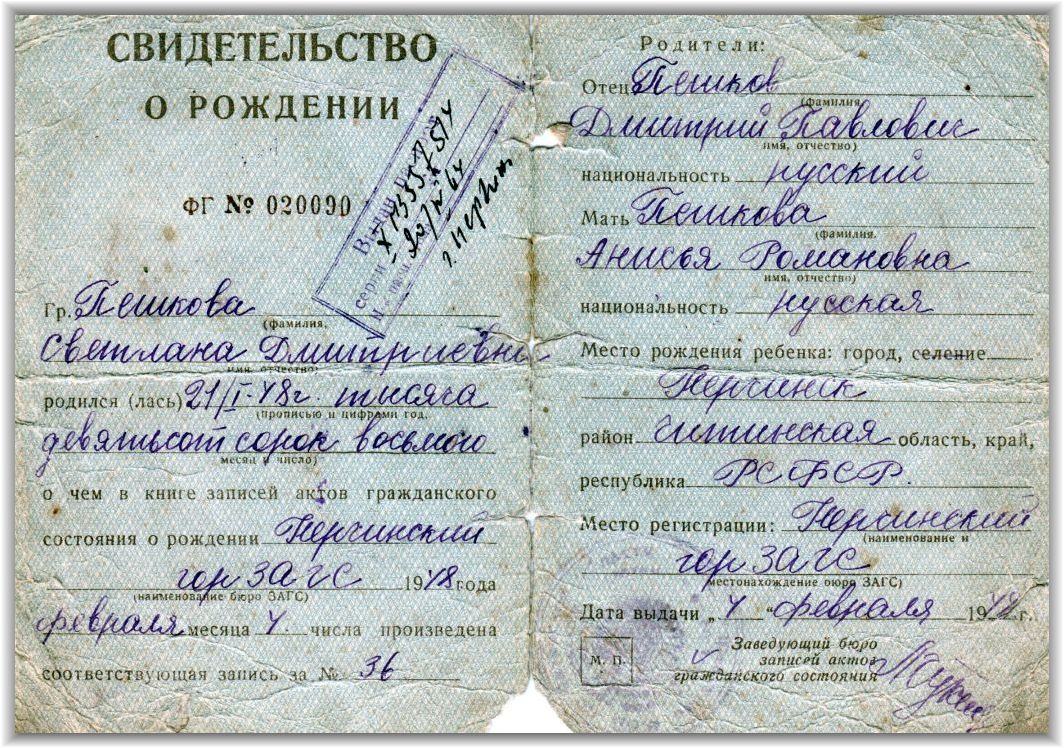 СВИДЕТЕЛЬСТВО
О РОЖДЕНИИ
ФГ № 020090
Гр. Пешкова
(фамилия,
Светлана Дмитриевна
имя, отчество)
родился (лась) 21/I-48г. тысяча
(прописью и цифрами год,
девятьсот сорок восьмого
месяц и число)
о чем в книге записей актов гражданского
состояния о рождении Нерчинский
гор ЗАГС 1948 года
(наименование бюро ЗАГС)
февраля месяца 4 числа произведена
соответствующая запись за № 36
Родители:
Отец Пешков
(фамилия,
Дмитрий Павлович
имя, отчество)
национальность русский
Мать Пешкова
(фамилия,
Анисья Романовна
имя, отчество)
национальность русская
Место рождения ребенка: город, селение
Нерчинск
район Читинская область, край,
республика РСФСР.
Место регистрации: Нерчинский
(наименование и
гор ЗАГС
местонахождение бюро ЗАГС)
Дата выдачи „4" февраля 1948 г.
М. П.
Заведующий бюро
записей актов
гражданского состояния
серии